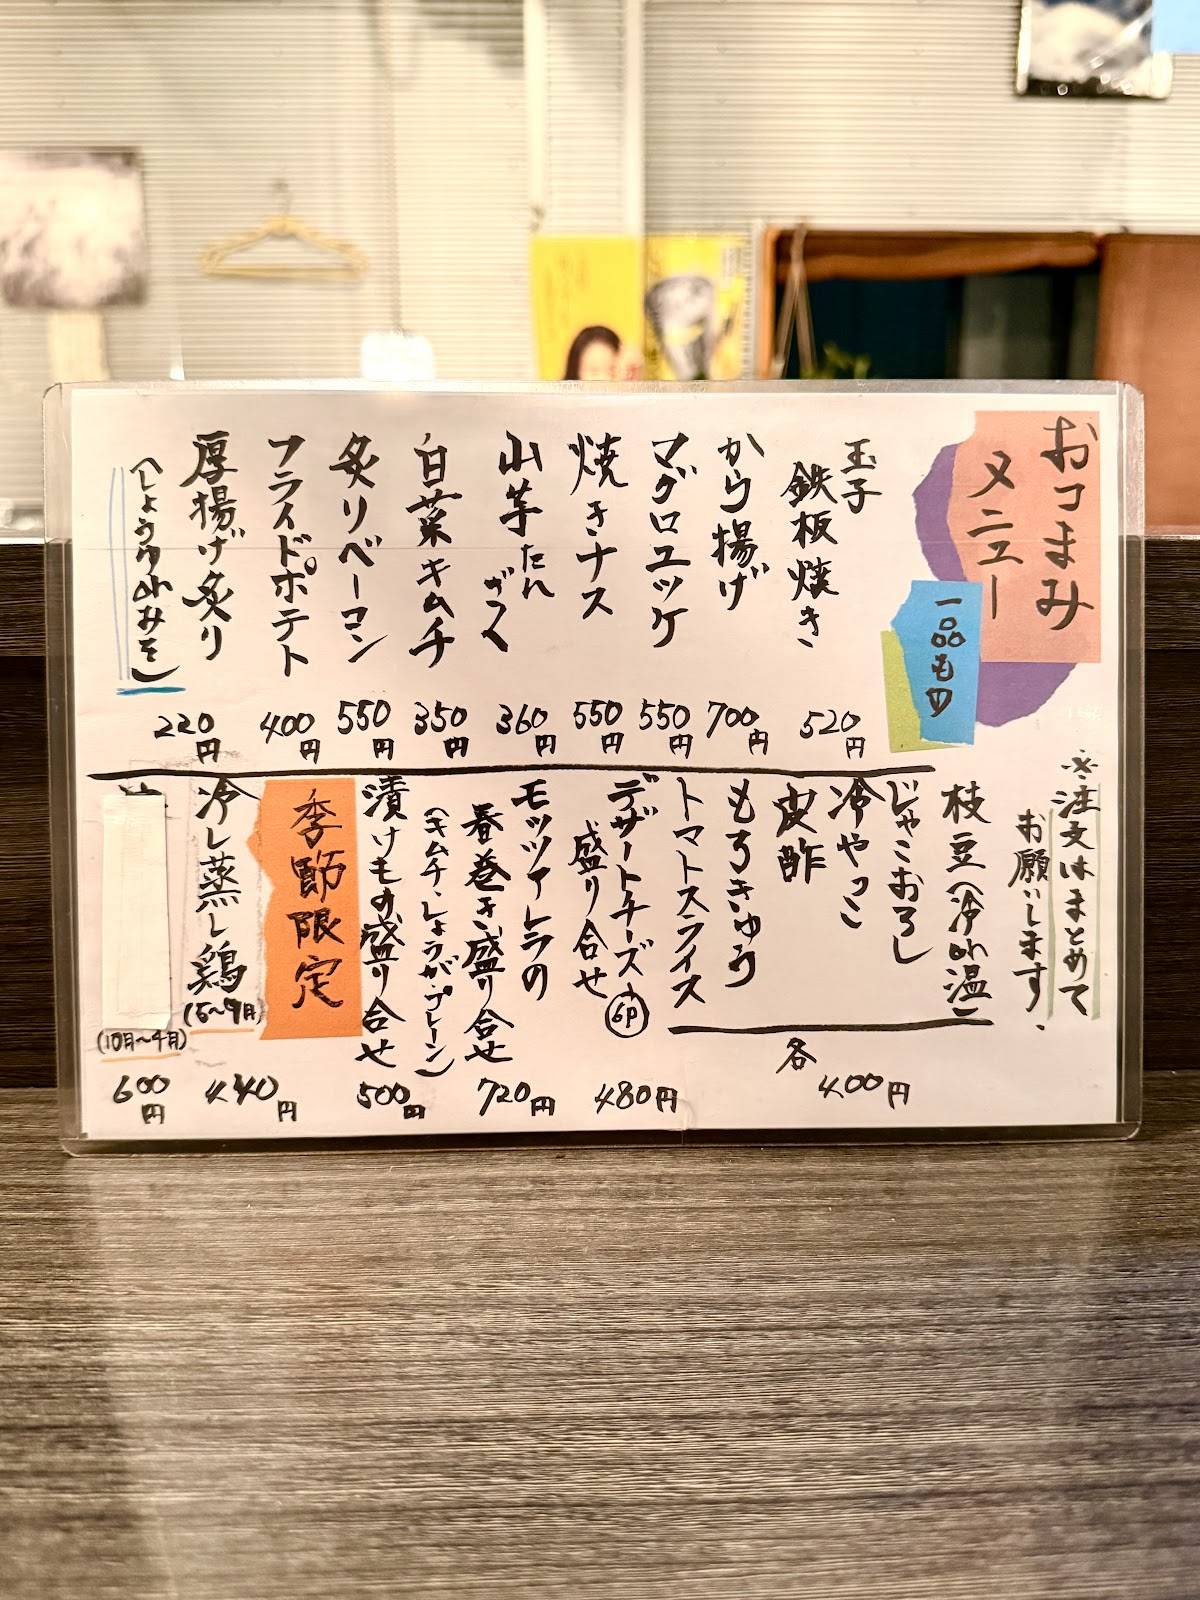 おつまみ
メニュー
一品もの
玉子
鉄板焼き
520円
から揚げ
700円
マグロユッケ
550円
焼きナス
550円
山芋たんざく
360円
白菜キムチ
350円
炙りベーコン
550円
フライドポテト
400円
厚揚げ炙り
(しょうゆorみそ)
220円
※注文はまとめて
お願いします、
枝豆(冷or温)
じゃこおろし
冷やっこ
皮酢
もろきゅう
トマトスライス
各
400円
デザートチーズ
盛り合せ
6P
480円
モッツァレラの
春巻き盛り合せ
720円
漬けもの盛り合せ
(キムチ・しょうが・プレーン)
500円
季節限定
冷し蒸し鶏
(5~9月)
440円
(10月~4月)
600円